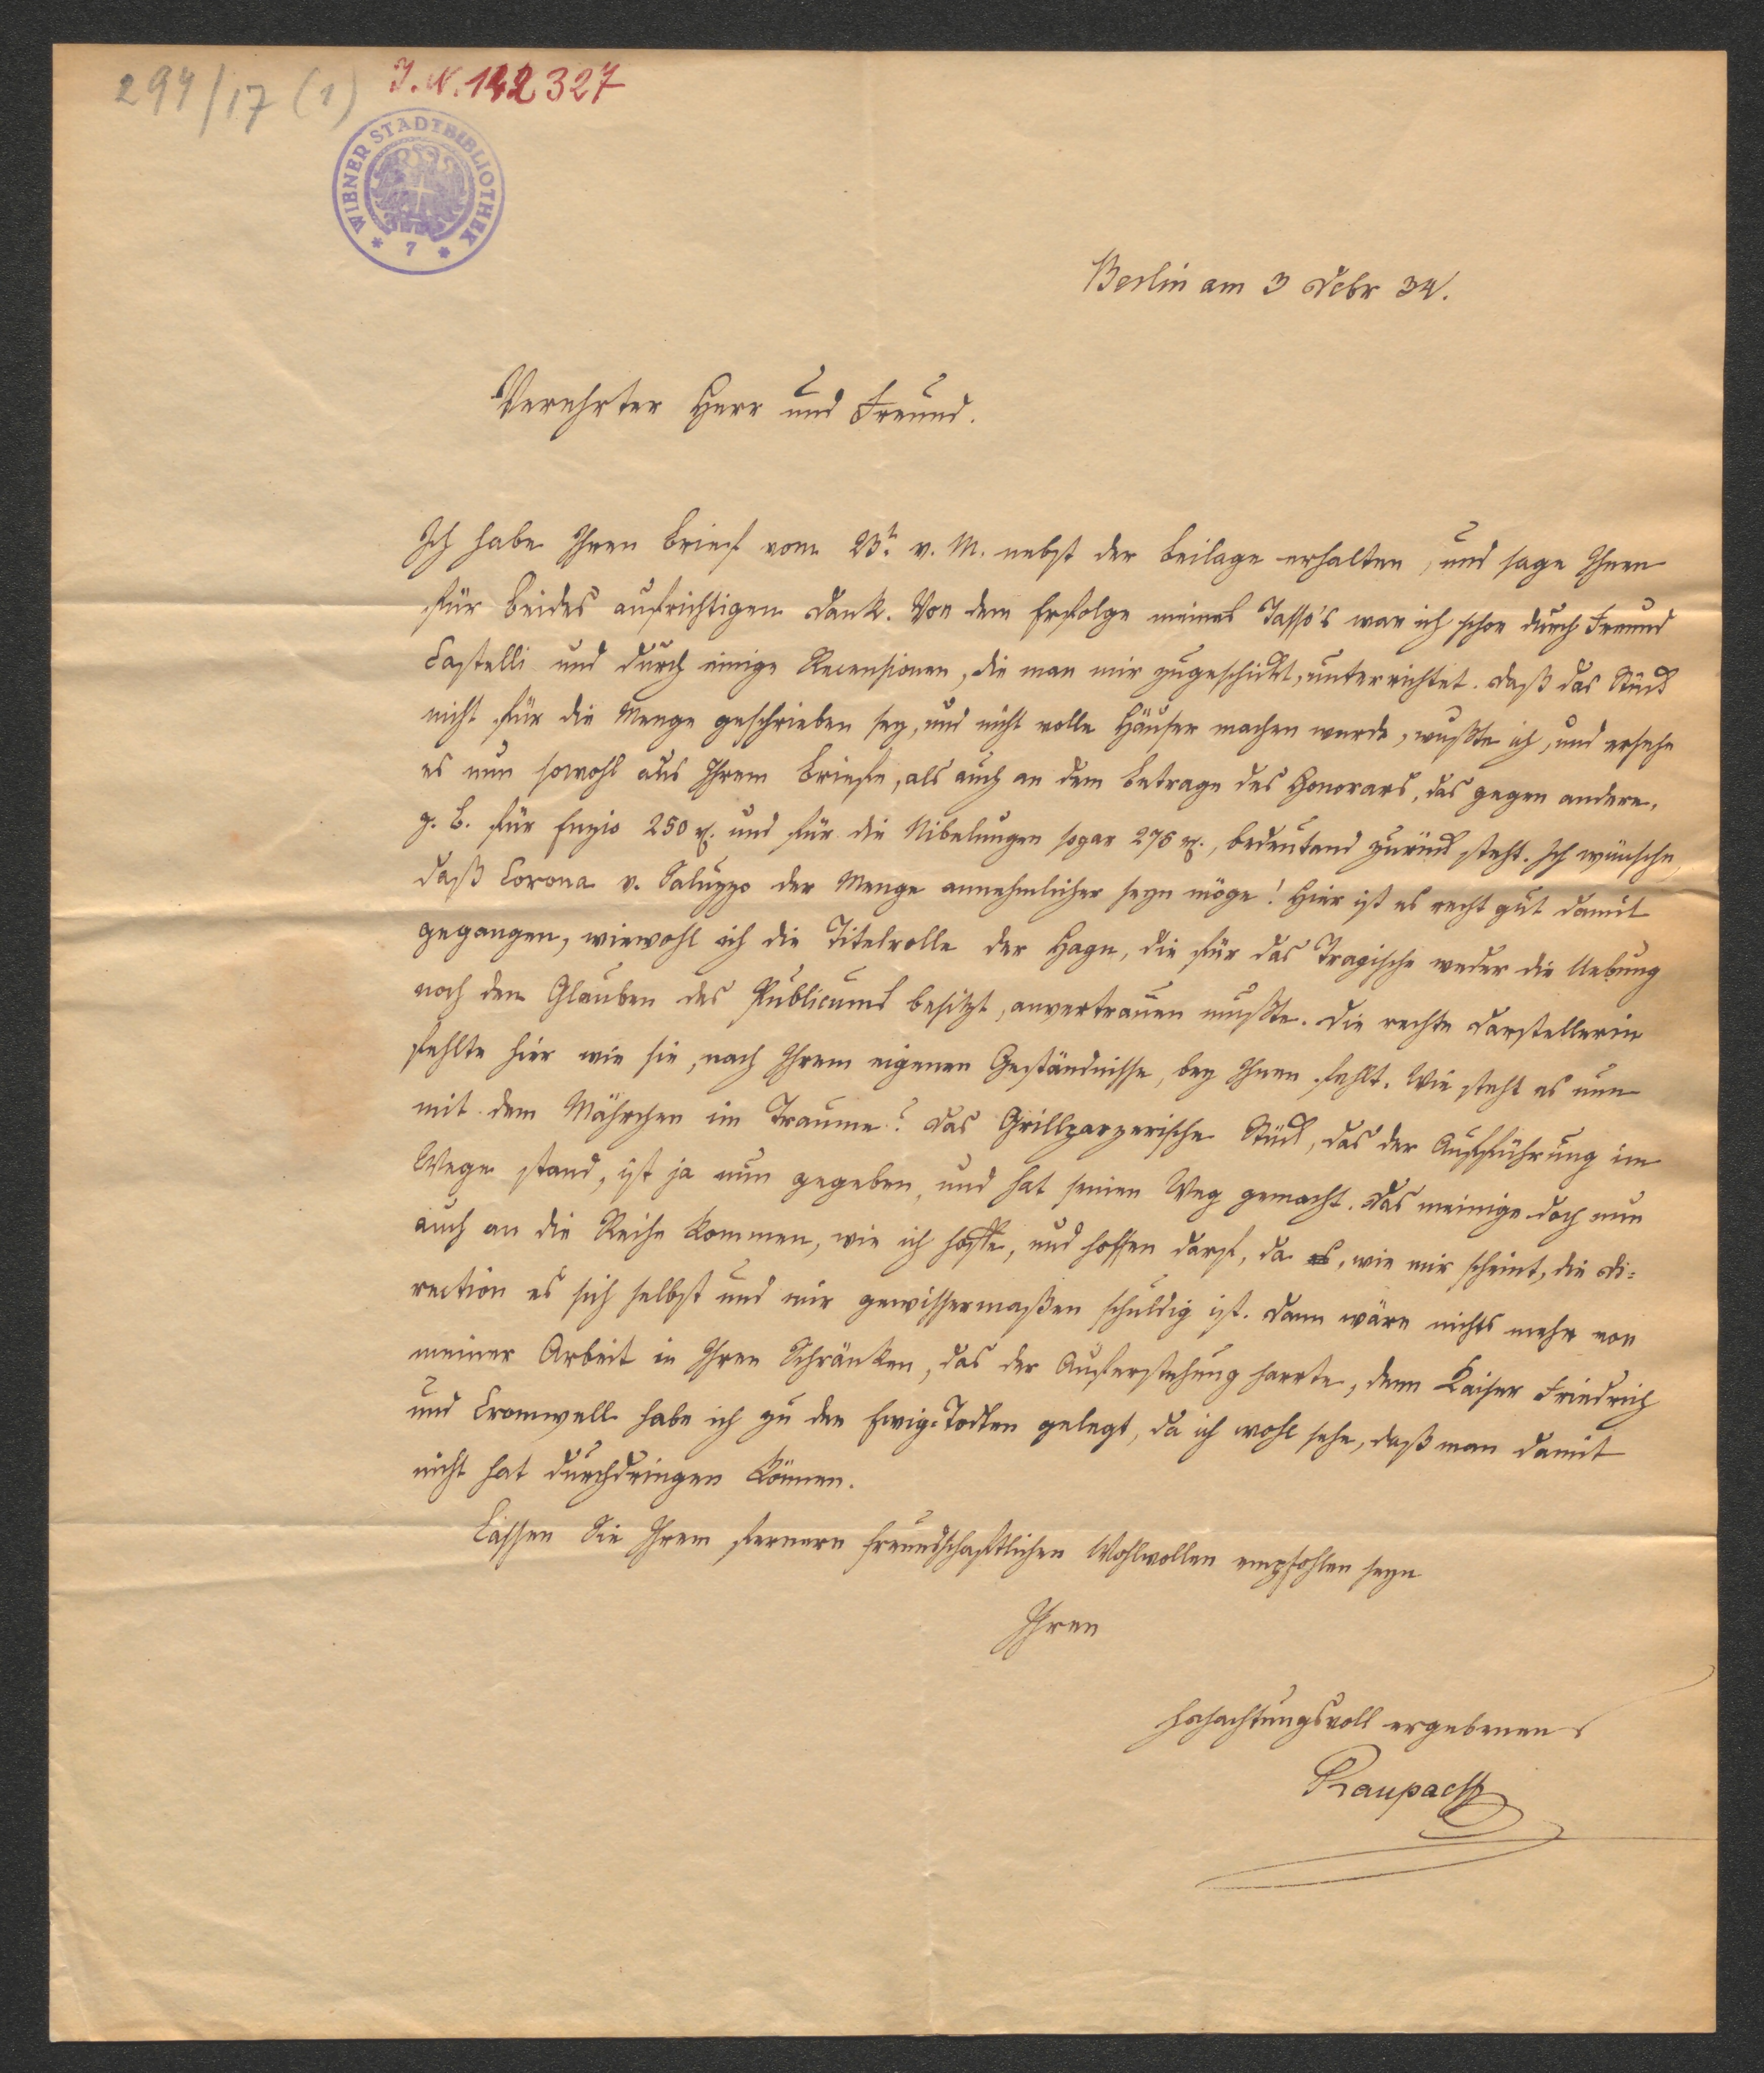 294/17 (1)
J. N. 142327
WIENER STADTBIBLIOTHEK
* 7 *
Berlin am 3 Debr 34.
Verehrter Herr und Freund.
Ich habe Ihren Brief vom 23t v. M. nebst der Beilage erhalten, und sage Ihnen
für Beides aufrichtigen Dank. Von dem Erfolge meines Tasso's war ich schon durch Freund
Castelli und durch einige Recensionen, die man mir zugeschickt, unterrichtet. Daß das Stück
nicht für die Menge geschrieben sey, und nicht volle Häuser machen werde, wußte ich, und ersehe
es nun sowohl aus Ihrem Briefe, als auch an dem Betrage des Honorars, das gegen andere,
z. B. für Enzio 250 und für die Nibelungen sogar 276, bedeutend zurück steht. Ich wünsche,
daß Corona v. Saluzzo der Menge annehmlicher seyn möge! Hier ist es recht gut damit
gegangen, wiewohl ich die Titelrolle der Hagn, die für das Tragische weder die Uebung
noch den Glauben des Publicums besitzt, anvertrauen mußte. Die rechte Darstellerin
fehlte hier wie sie, nach Ihrem eigenen Geständnisse, bey Ihnen fehlt. Wie steht es nun
mit dem Mährchen im Traume? Das Grillparzerische Stück, das der Aufführung im
Wege stand, ist ja nun gegeben, und hat seinen Weg gemacht. Das meinige doch nun
auch an die Reihe kommen, wie ich hoffe, und hoffen darf, da es, wie mir scheint, die Di=
rection es sich selbst und mir gewissermaßen schuldig ist. Dann wäre nichts mehr von
meiner Arbeit in Ihren Schränken, das der Auferstehung harrte, denn Kaiser Friedrich
und Cromwell habe ich zu den Ewig=Todten gelegt, da ich wohl sehe, daß man damit
nicht hat durchdringen können.
Lassen Sie Ihrem fernern freundschaftlichen Wohlwollen empfohlen seyn
Ihren
hochachtungsvoll ergebenen
Raupach